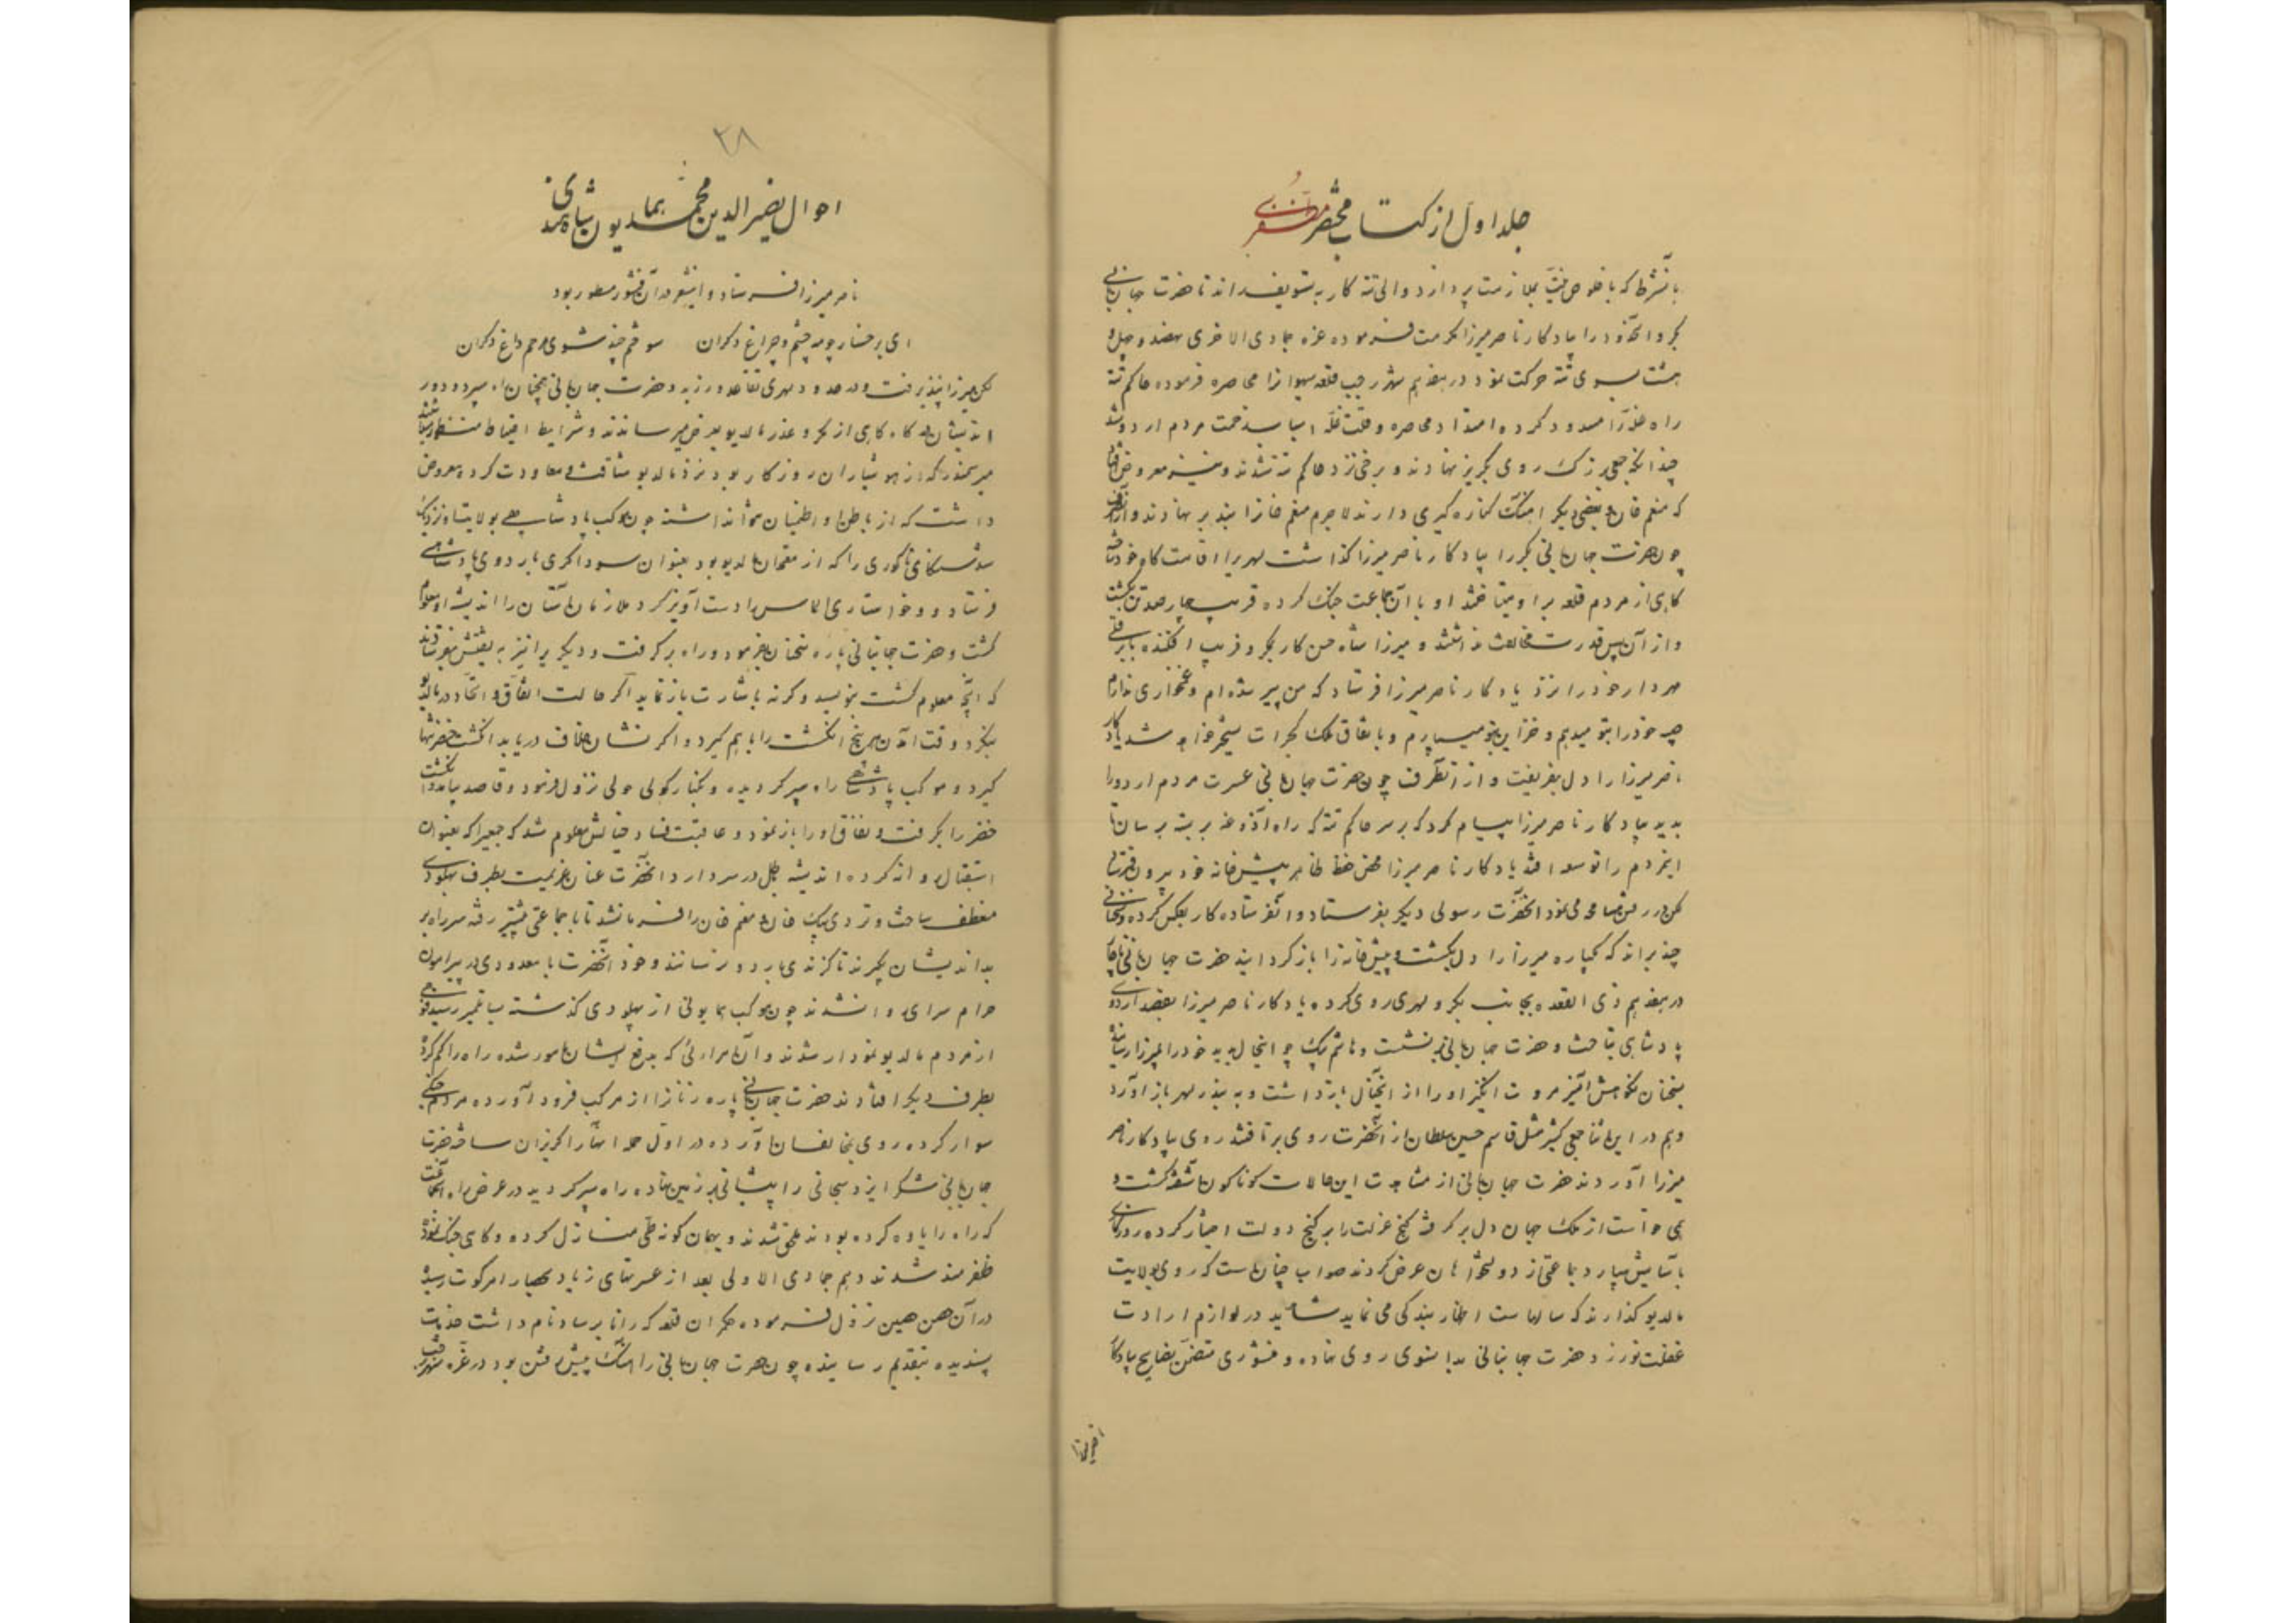 جلد اول از کتاب مختصر مظفری
بآنشرط که با خلوص نیت بملازمت پردازد والی تته کار به تسویف انداخت حضرت جهانبانی
بکر و آنحدود را بیادگار ناصر میرزا مکرمت فرموده غره جمادی الاخری نهصد و چهل و
هشت بسوی تته حرکت نمود در هفدهم شهر رجب قلعه سهوانرا محاصره فرموده حاکم تته
راه غله را مسدود کرده امتداد محاصره و قلت غله اسباب زحمت مردم اردو شد
چنانکه جمعی بزرگ روی بگریز نهادند و برخی نزد حاکم تته شدند و نیز معروض افتاد
که منعم خان و بعضی دیگر آهنگ کناره گیری دارند لاجرم منعم خانرا بند بر نهادند و از آنطرف
چون حضرت جهانبانی بکر را بیادگار ناصر میرزا گذاشت لهری را اقامت گاه خود ساخته
گاهی از مردم قلعه بر او میتاختند او با آن جماعت جنگ کرده قریب چهارصد تن بکشت
و از آن پس قدرت مخالفت نداشتند و میرزا شاه حسن کار بمکر و فریب افکنده بابر قلی
مهردار خود را نزد یادگار ناصر میرزا فرستاد که من پیر شده‌ام و غمخواری ندارم
صبیه خود را بتو میدهم و خزاین بتو میسپارم و باتفاق ملک گجرات مسخر خواهد شد یادگار
ناصر میرزا را دل بفریفت و از آنطرف چون حضرت جهانبانی عسرت مردم اردو را
بدید بیادگار ناصر میرزا پیام کرد که بر سر حاکم تته که راه آذوغه بر بسته برسان تا
این مردم را توسعه افتد یادگار ناصر میرزا محض حفظ ظاهر پیش خانه خود بیرون فرستاد
لکن در رفتن مسامحه می نمود آنحضرت رسولی دیگر بفرستاد و آنفرستاده کار بعکس کرده و سخنانی
چند براند که یکباره میرزا را دل بگشت و پیش خانه را باز گردانید حضرت جهانبانی ناچار
در هفدهم ذی القعده بجانب بکر و لهری روی کرده یادگار ناصر میرزا بقصد اردوی
پادشاهی بتاخت و حضرت جهانبانی بر نشست و هاشم بیک چو اینحال بدید خود را بمیرزا رسانیده
بسخنان نکوهش آمیز مروت انگیز او را از آنخیال باز داشت و به بندر لهر باز آورد
و هم در این اثنا جمعی کثیر مثل قاسم حسین سلطان از آنحضرت روی برتافتند روی بیادگار ناصر
میرزا آوردند حضرت جهانبانی از مشاهدت این حالات گوناگون آشفته گشت و
همی خواست از ملک جهان دل برگرفته کنج عزلت را بر گنج دولت اختیار کرده روزگاری
بآسایش سپارد جماعتی از دولتخواهان عرض کردند صواب چنان است که روی بولایت
مالدیو گذارند که سالهاست اظهار بندگی می نماید شاید در لوازم ارادت
غفلت نورزد حضرت جهانبانی بدانسوی روی نهاده و منشوری متضمن نصایح بیادگار
۲۸
احوال نصیر الدین محمد همایون شاه هندی
ناصر میرزا فرستاد و این شعر در آن منشور مسطور بود
ای برخسار چو مه چشم و چراغ دگران سوختم چند شوی مرهم داغ دگران
لکن میرزا نپذیرفت و در حدود لهری تقاعد ورزید و حضرت جهانبانی همچنان راه سپرد و دور
اندیشان درگاه گاهی از مکر و غدر مالدیو بعرض میرساندند و شرایط احتیاط منظور میداشتند
میر سمندر که از هوشیاران روزگار بود نزد مالدیو شتافته معاودت کرده معروض
داشت که از باطن او اطمینان نتواند داشت چون موکب پادشاهی بولایت او نزدیک
شد سنکائی ناگوری را که از معتمدان مالدیو بود بعنوان سوداگری باردوی پادشاهی
فرستاد و خواستاری الماس را دست آویز کرد ملازمان آستان را اندیشه او معلوم
گشت و حضرت جهانبانی پاره سخنان بفرمود و راه برگرفت و دیگری را نیز به تفتیش بفرستاد
که آنچه معلوم گشت بنویسد و گرنه باشارت باز نماید اگر حالت اتفاق و اتحاد در مالدیو
بنگرد وقت آمدن هر پنج انگشت را باهم گیرد و اگر نشان خلاف دریابد انگشت خنصر تنها
گیرد و موکب پادشاهی راه سپر گردیده و بکنار کولی نزول فرمود و قاصد بیامد و انگشت
خنصر را بگرفت و نفاق او را باز نمود و عاقبت فساد خیالش معلوم شد که جمعی را که بعنوان
استقبال روانه کرده اندیشه باطل در سر دارد آنحضرت عنان عزیمت بطرف پهلودی
منعطف ساخت و تردی بیک خان و منعم خان را فرمانشد تا با جماعتی پیشتر رفته سر راه بر
بداندیشان بگیرند تا گزندی باردو نرسانند و خود آنحضرت با معدودی در پیرامون
حرم سرای روان شدند چون موکب همایونی از پهلودی گذشته بساتلمیر رسید فوجی
از مردم مالدیو نمودار شدند و آن امرائی که بدفع ایشان مامور شده راه را گم کرده
بطرف دیگر افتادند حضرت جهانبانی پاره زنانرا از مرکب فرود آورده مردم جنگی
سوار کرده روی بمخالفان آورده در اول حمله آنها را گریزان ساخته حضرت
جهانبانی شکر ایزد سبحانی را پیشانی بر زمین نهاده راه سپر گردید در عرض راه آنجماعت
که راه را یاوه کرده بودند ملحق شدند و بهمان گونه طی منازل کرده و گاهی جنگ نموده
ظفرمند شدند دهم جمادی الاولی بعد از عسرتهای زیاد بحصار امرکوت رسیده
در آن حصن حصین نزول فرموده حکمران قلعه که رانا پرساد نام داشت خدمات
پسندیده بتقدیم رسانیده چون حضرت جهانبانی را آهنگ پیش رفتن بود در غره شهر رجب